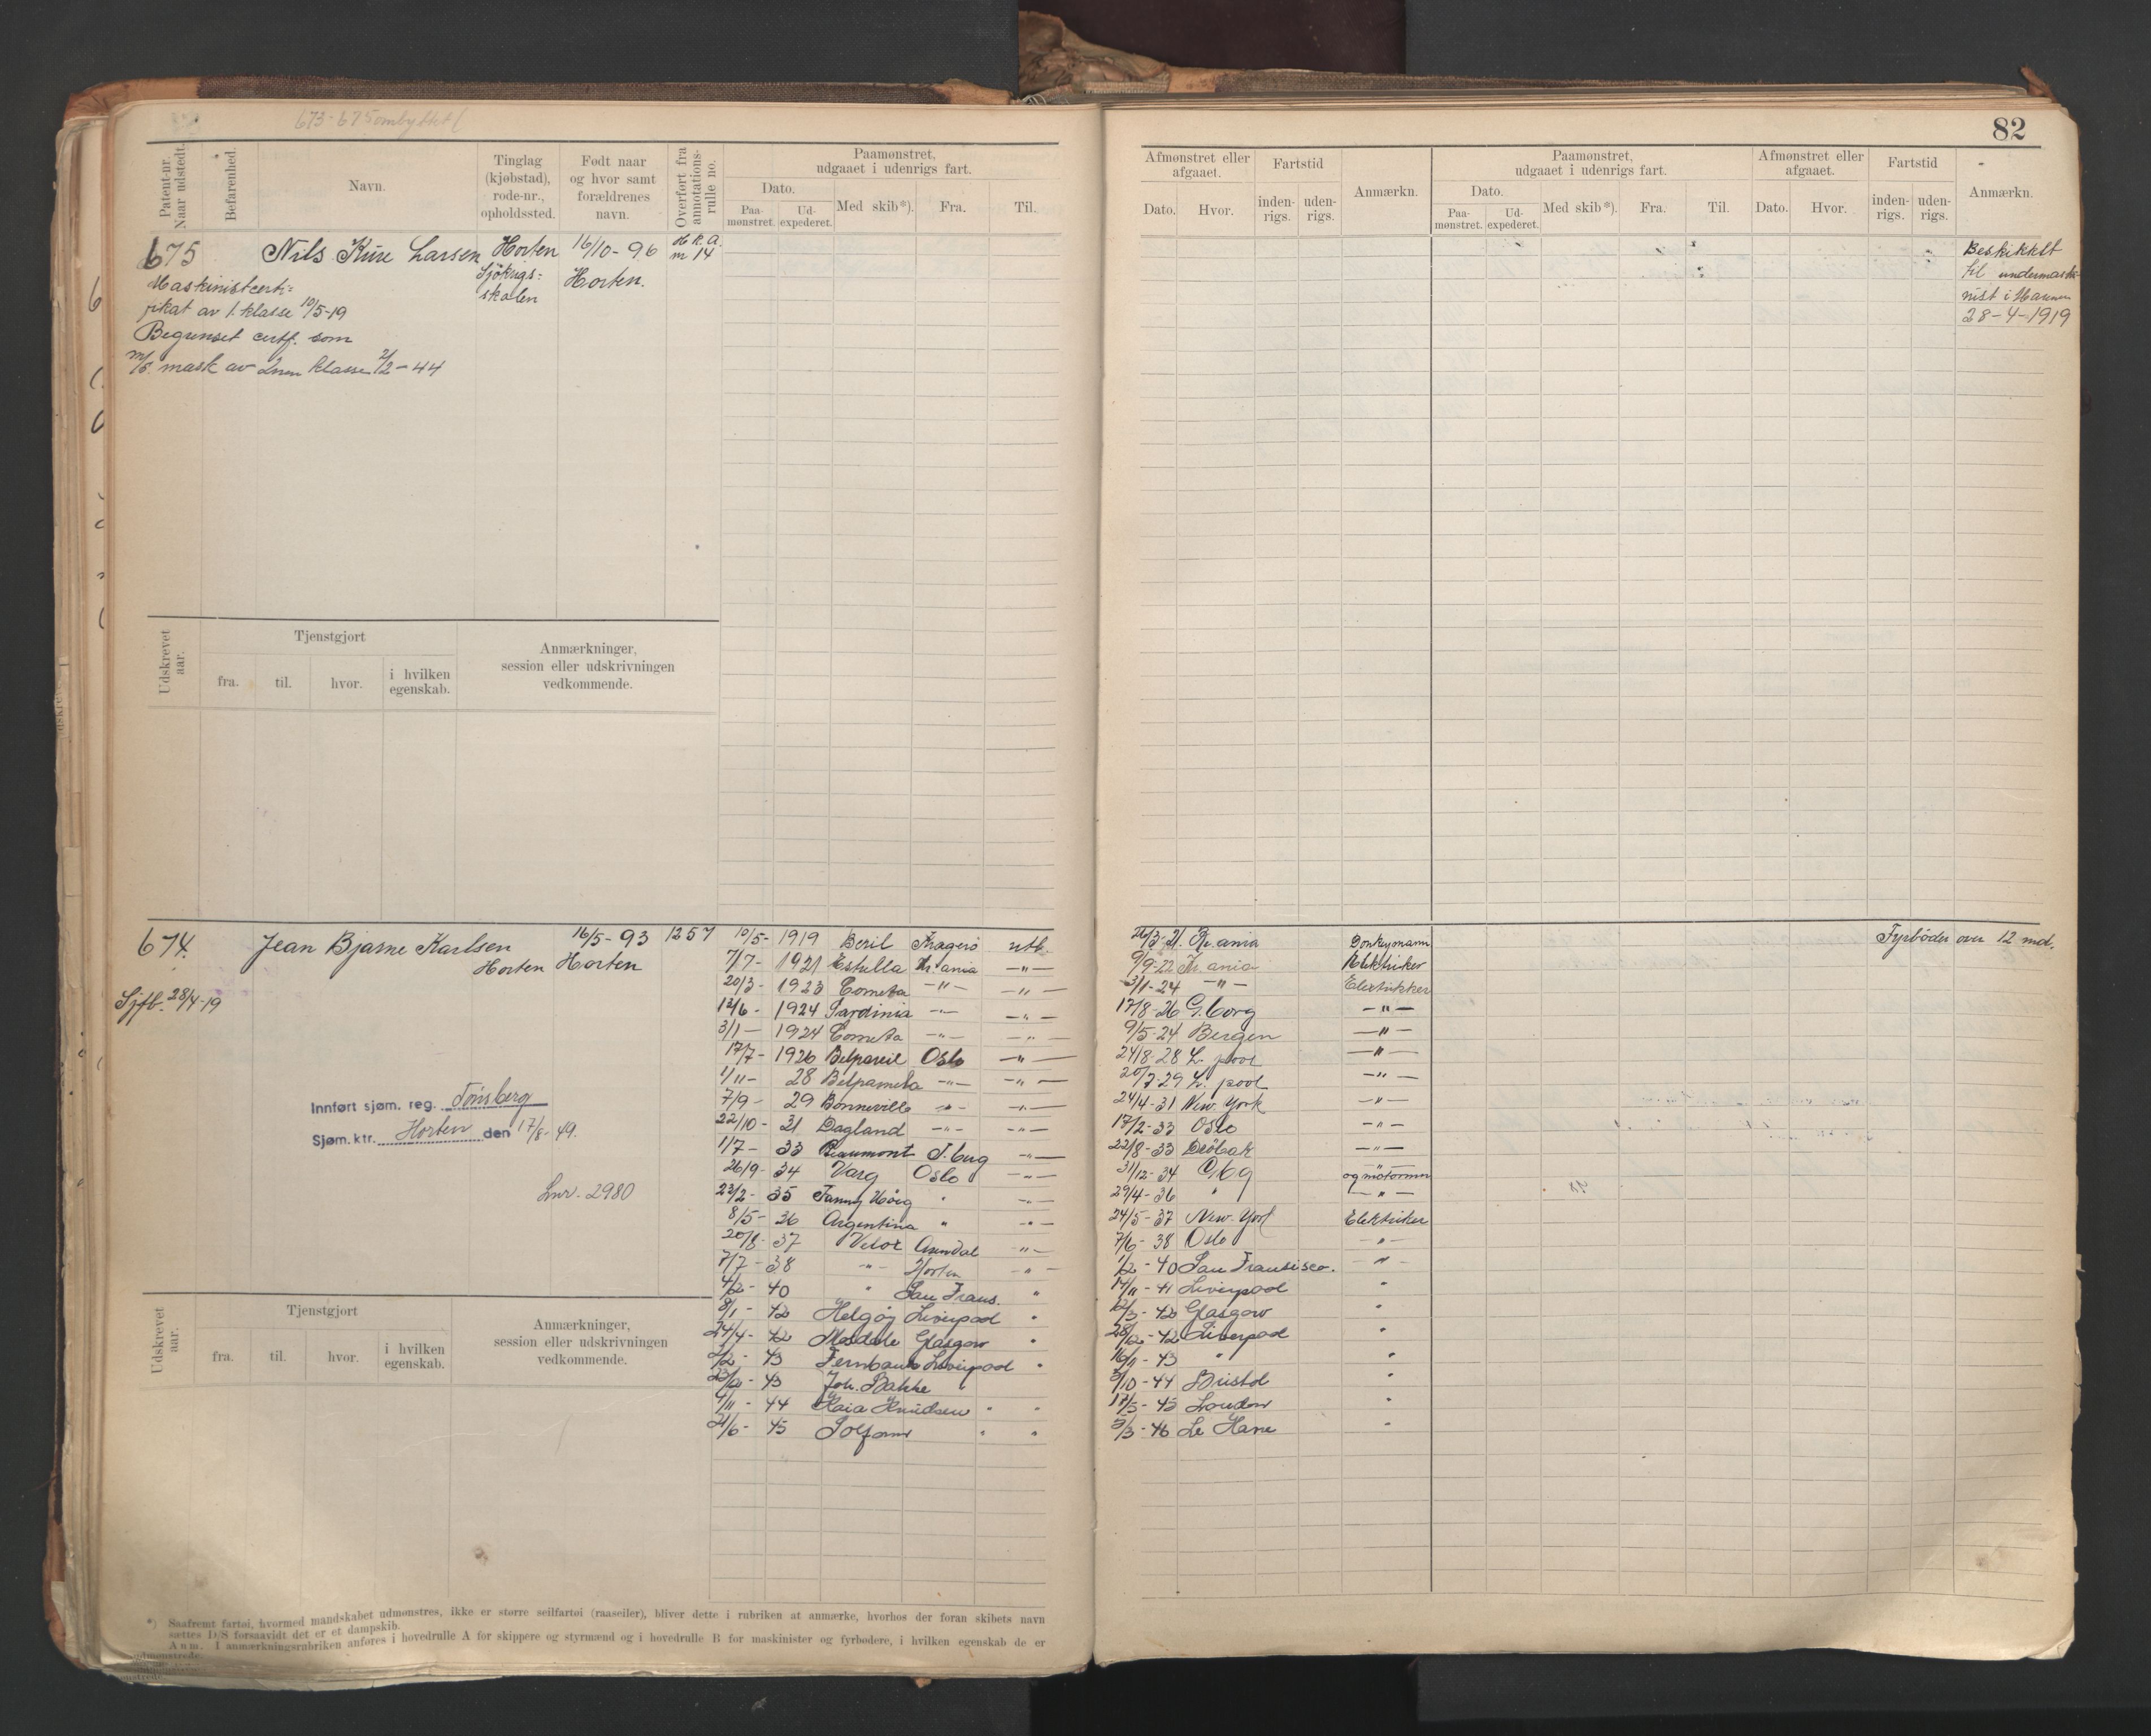 673-675 ombyttet
82
Patent-nr. Naar udstedt.
Befarenhed.
Navn.
Tinglag (kjøbstad), rode-nr., opholdssted.
Født naar og hvor samt forældrenes navn.
Overført fra annotations-rulle no.
Paamønstret, udgaaet i udenrigs fart.
Dato.
Paa-mønstret.
Ud-expederet.
Med skib*).
Fra.
Til.
Afmønstret eller afgaaet.
Dato.
Hvor.
Fartstid
inden-rigs.
uden-rigs.
Anmærkn.
Paamønstret, udgaaet i udenrigs fart.
Dato.
Paa-mønstret.
Ud-expederet.
Med skib*).
Fra.
Til.
Afmønstret eller afgaaet.
Dato.
Hvor.
Fartstid
inden-rigs.
uden-rigs.
Anmærkn.
675 Nils Kure Larsen Horten 16/10-96 H R A.
Sjökrigs= Horten. m 14
skolen
Maskinistcerti=
fikat av 1. klasse 10/5-19
Begrenset certf. som
m/s. mask av 2nen klasse 2/2-44
Beskikket
til undermaski=
nist i Marinen
28-4-1919
Udskrevet aar.
Tjenstgjort
fra.
til.
hvor.
i hvilken egenskab.
Anmærkninger, session eller udskrivningen vedkommende.
674. Jean Bjarne Karlsen 16/5-93 1257
Horten Horten
Sjfb. 28/4-19
Innført sjøm. reg. Tönsberg
Sjøm.ktr. Horten den 17/8-49.
Lnr. 2980
10/5- 1919 Beril Kragerö utl. 26/3-21. Kr.ania Donkeymann Fyrböder over 12 md.
7/7- 1921 Estrella Kr.ania -"- 9/9-22 Kr.ania Elektriker
20/3- 1923 Cometa -"- -"- 3/1-24 -"- Elektrikker
12/6- 1924 Sardinia -"- -"- 17/8-26 G.borg -"-
3/1- 1924 Cometa -"- -"- 9/5-24 Bergen -"-
17/7- 1926 Belpareil Oslo -"- 24/8-28 L.pool -"-
1/11- 28 Belpamela -"- -"- 20/7-29 L.pool -"-
7/9- 29 Bonneville -"- -"- 24/4-31 New York -"-
22/10- 31 Dagland -"- -"- 17/2-33 Oslo -"-
1/7- 33 Beaumont T.berg -"- 22/8-33 Dröbak -"-
26/9- 34 Varg Oslo -"- 31/12-34 Gbg -"-
og motormn
22/2- 35 Fanny " -"- 29/4-36 " -"-
8/5- 36 Argentina " -"- 24/5-37 New-York Elektriker
20/8- 37 Velox Arendal -"- 7/6-38 Oslo -"-
7/7- 38 -"- Horten -"- 1/2-40 San Fransisco. -"-
4/2- 40 " San Frans. " 14/11-41 Liverpool "
8/1- 42 Helgöy Liverpool " 12/3-42 Glasgow "
24/4- 42 Glasgow " 28/12-42 Liverpool "
2/2- 43 Fernbank Liverpool " 16/11-43 " "
43 Joh. Bakke 5/10-44 Bristol "
4/11- 44 Kaia Knudsen " " 17/5-45 London "
21/6- 45 Solfonn " " 5/3-46 Le Havre "
Udskrevet aar.
Tjenstgjort
fra.
til.
hvor.
i hvilken egenskab.
Anmærkninger, session eller udskrivningen vedkommende.
*) Saafremt fartøi, hvormed mandskabet udmønstres, ikke er større seilfartøi (raaseiler), bliver dette i rubriken at anmærke, hvorhos der foran skibets navn
sættes D/S forsaavidt det er et dampskib.
Anm. I anmærkningsrubriken anføres i hovedrulle A for skippere og styrmænd og i hovedrulle B for maskinister og fyrbødere, i hvilken egenskab de er
udmønstrede.